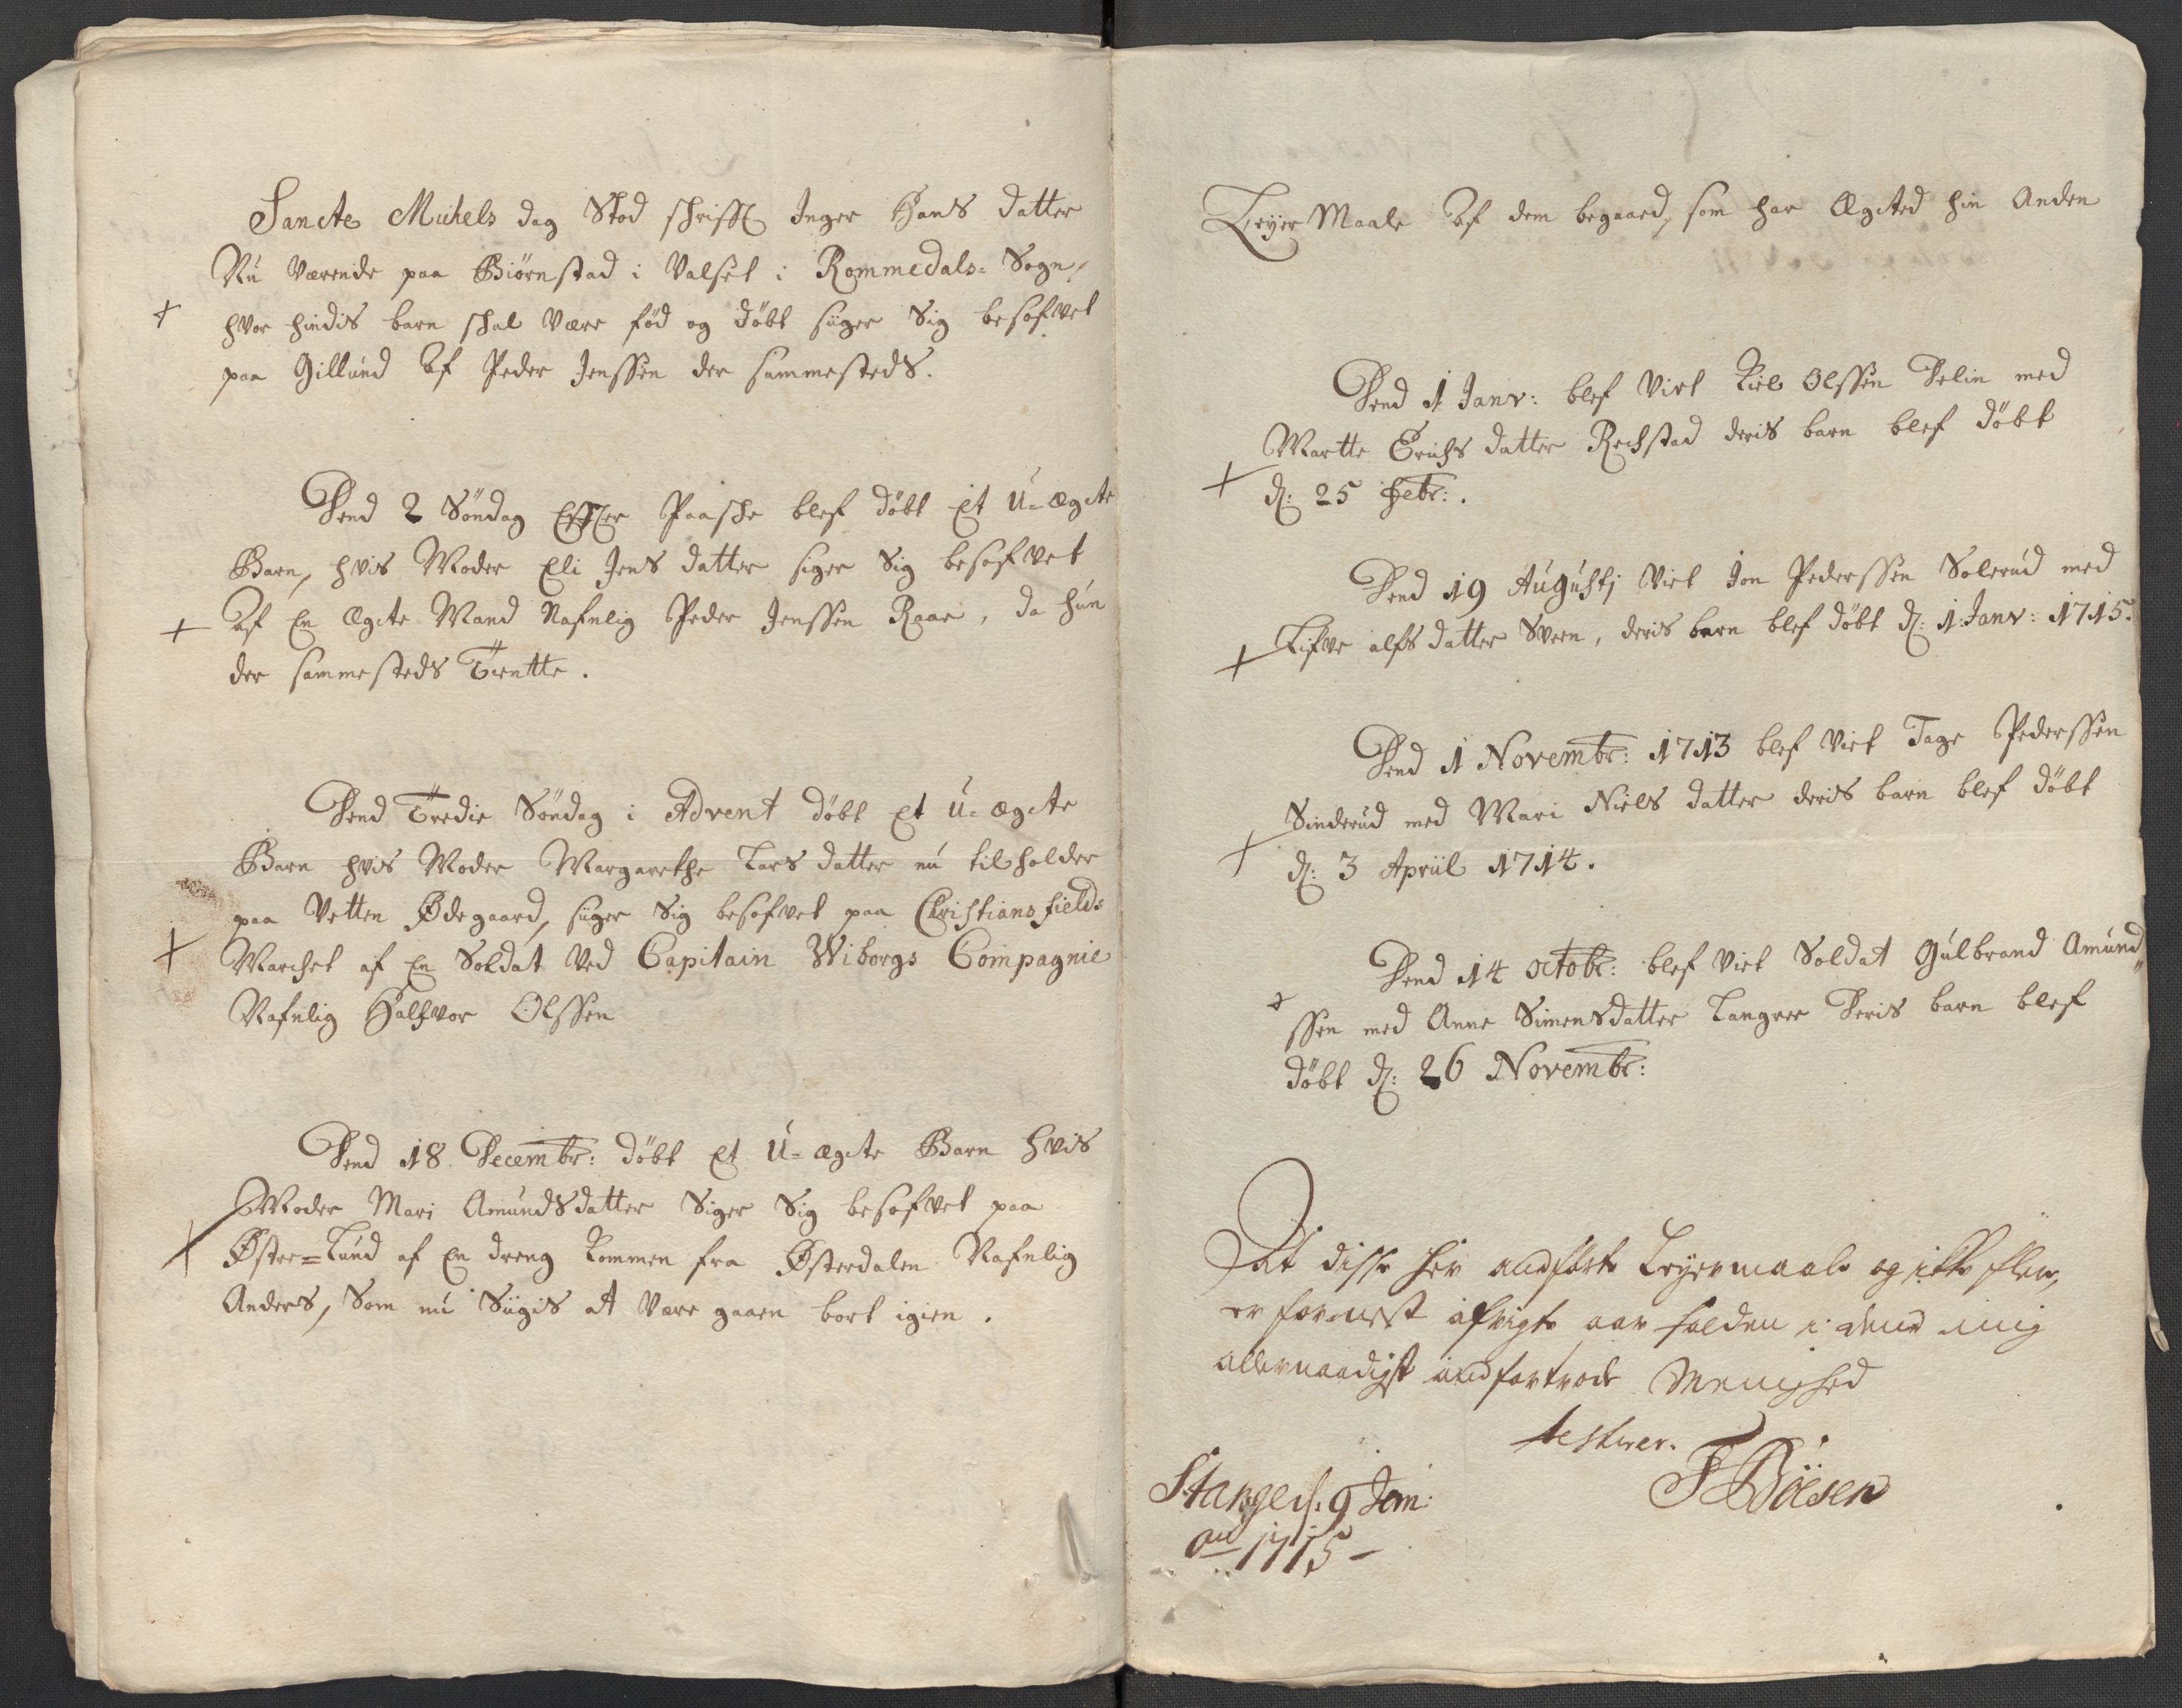 Sancte Michels dag Stod schrifft Inger Hans datter
Nu Værende paa Biørnstad i Valset i Rommedals= Sogn,
+ hvor hindis barn schal være fød og døbt siiger Sig besofvet
paa Gillund Af Peder Jenssen der sammesteds.
Dend 2 Søndag Effter Paasche blef døbt Et U=ægte
Barn, hvis Moder Eli Jens datter siger Sig besofvet
+ Af En Ægte Mand Nafnlig Peder Jenssen Raar, da hun
der sammesteds Tientte.
Dend Tredie Søndag i Advent døbt Et U=ægte
Barn hvis Moder Margarethe Lars datter nu tilholder
paa Vetten Ødegaard, siiger Sig besofvet paa Christiansfields
+ Marchet af En Soldat Ved Capitain Wiborgs Compagnie
Nafnlig Halfvor Olssen
Dend 18 Decembr: døbt Et U=ægte Barn hvis
Moder Mari Amundsdatter Siger Sig besofvet paa
+ Øster=Lund af En dreng kommen fra Østerdalen Nafnlig
Anders, Som nu Siigis at Være gaaen bort igien.
Leyer Maale Af dem begaaed, som har Ægted hin Anden
Dend 1 Janv: blef Viet Kiel Olssen Delin med
Martte Erichs datter Rechstad deris barn blef døbt
+ d: 25 Febr:.
Dend 19 Augustj Viet Jon Pederssen Solerud med
+ Lisve alfs datter Sveen, deris barn blef døbt d: 1 Janv: 1715.
Dend 1 Novembr: 1713 blef Viet Tage Pederssen
Sinderud med Mari Niels datter deris barn blef døbt
+ d: 3 Apriil 1714.
Dend 14 octobr: blef Viet Soldat Gulbrand Amund„
+ ssen med Anne Simensdatter Langeee Deris barn blef
døbt d: 26 Novembr:
At disse her andførte Leyermaale og ikke fleer,
er fornest afvigte aar falden i denne mig
allernaadigst andfortroede Menighed
testerer.
Stange d. 9 Jan: FBöesen
ao 1715 –